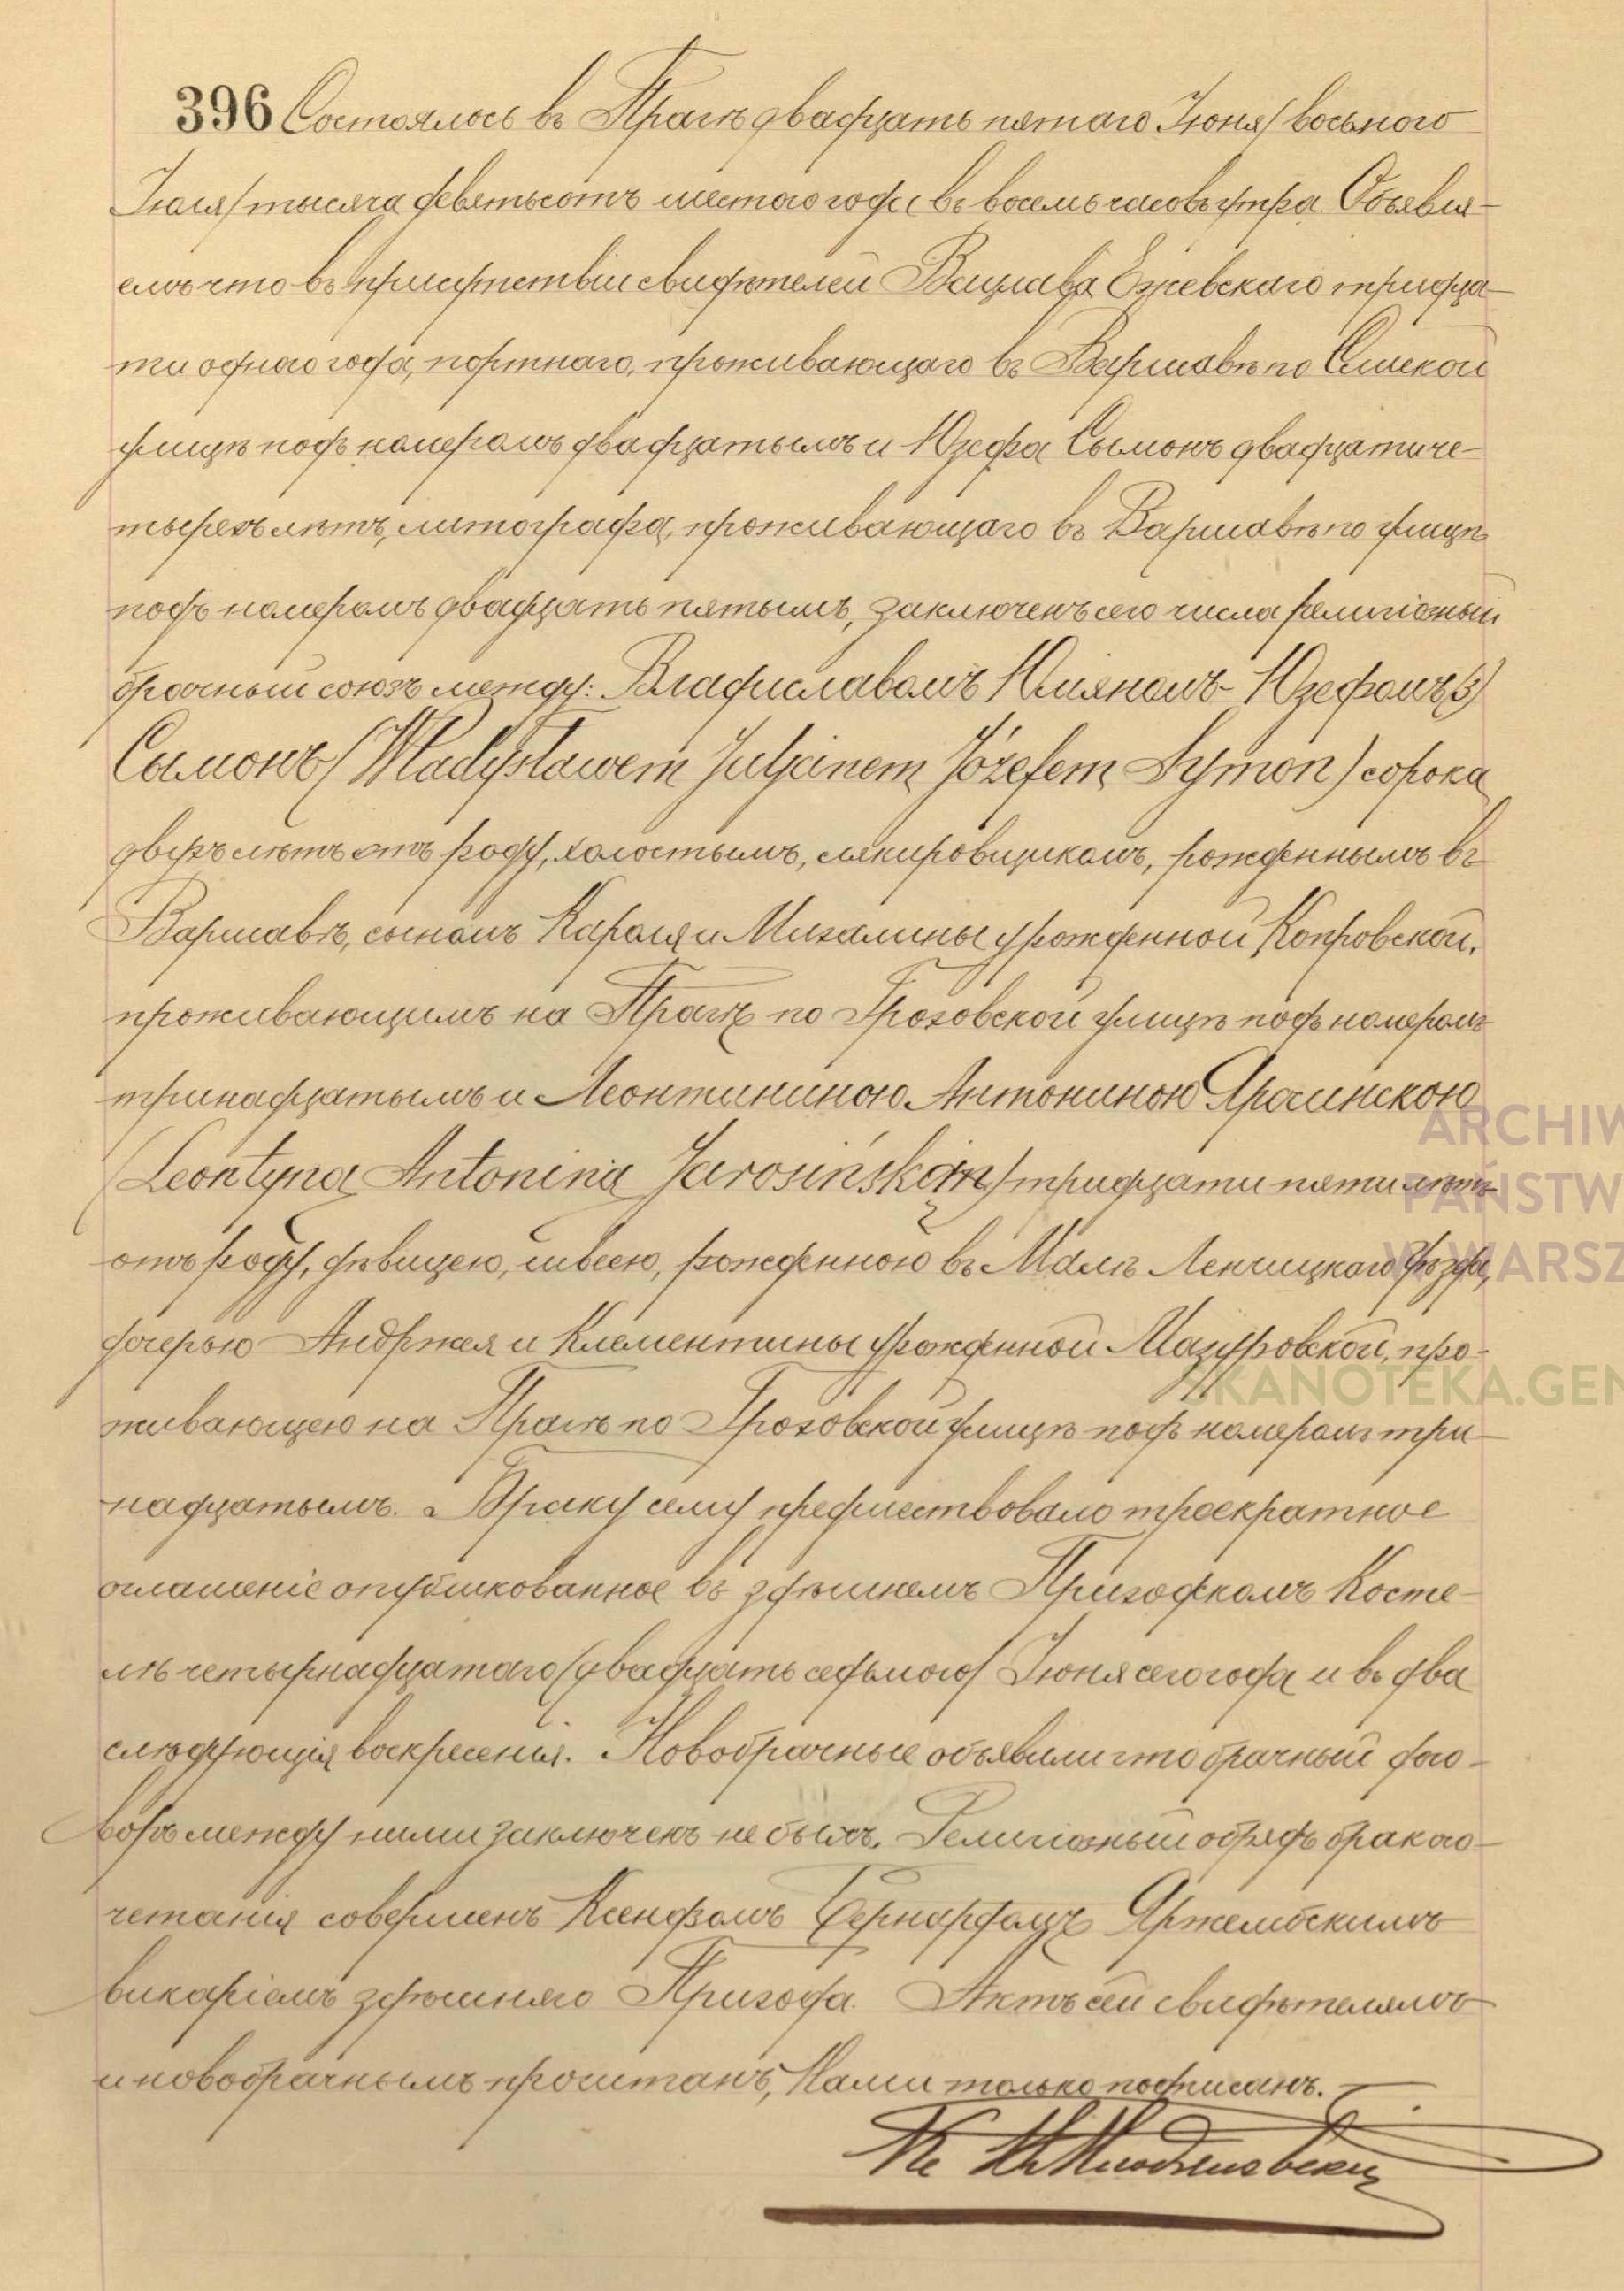 396 Состоялось въ Прагѣ двадцать пятаго Іюня/восьмого
Іюля/тысяча девятьсотъ шестого года въ восемь часовъ утра. Объявля-
емъ что въ присутствіи свидѣтелей Вацлава Ежевскаго тридца-
ти одного года, портнаго, проживающаго въ Варшавѣ по
улицѣ подъ номеромъ двадцатымъ и Юзефа Сымонъ двадцатиче-
тырехъ лѣтъ, литографа, проживающаго въ Варшавѣ по улицѣ
подъ номеромъ двадцать пятымъ, заключенъ сего числа религіозный
брачный союзъ между: Владиславомъ Юліяномъ-Юзефомъ (3)
Сымонъ (Władysławem Juljanem Józefem Symon) сорока
двухъ лѣтъ отъ роду, холостымъ, лякировщикомъ, рожденнымъ въ
Варшавѣ, сыномъ Кароля и Михалины урожденной Копровской,
проживающимъ на Прагѣ по Гроховской улицѣ подъ номеромъ
тринадцатымъ и Леонтининою Антониною Яросинскою
(Leontyną Antoniną Jarosińską) тридцати пяти лѣтъ
отъ роду, дѣвицею, швеею, рожденною въ Ленчицкого уѣзда,
дочерью Андржея и Клементины урожденной Мазуровской, про-
живающею на Прагѣ по Гроховской улицѣ подъ номеромъ три-
надцатымъ. Браку сему предшествовало троекратное
оглашеніе опубликованное въ здѣшнемъ Приходскомъ Косте-
лѣ четырнадцатаго/двадцать седьмого/ Іюня сего года и въ два
слѣдующія воскресенія. Новобрачные объявили что брачный дого-
воръ между ними заключенъ не былъ. Религіозный обрядъ бракосо-
четанія совершенъ Ксендзомъ Бернардомъ Яржембскимъ
викаріемъ здѣшняго Прихода. Актъ сей свидѣтелямъ
и новобрачнымъ прочитанъ, Нами только подписанъ.
ARCHIW
PAŃSTW
W WARSZ
SKANOTEKA.GEN